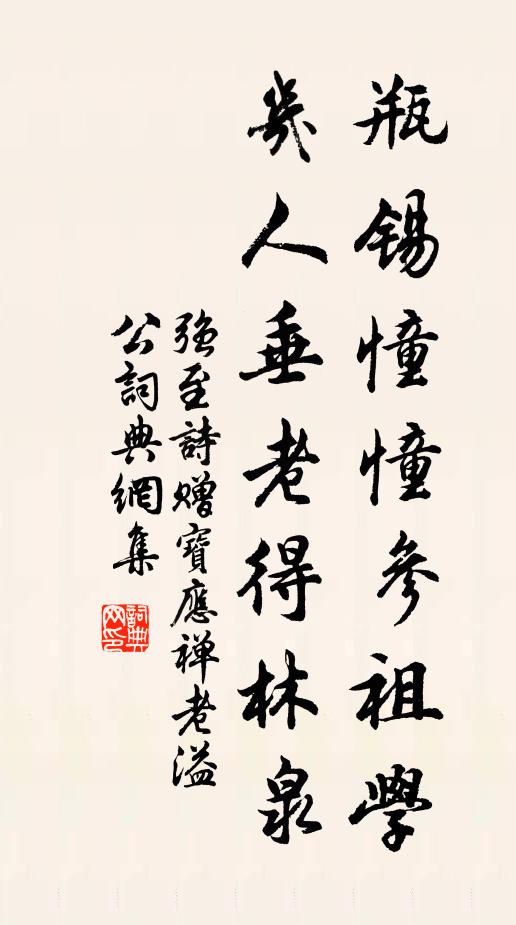 瓶錫憧憧參祖學
幾人垂老得林泉
強至詩贈寶應禅老溢
公詞典網集
詞典网印